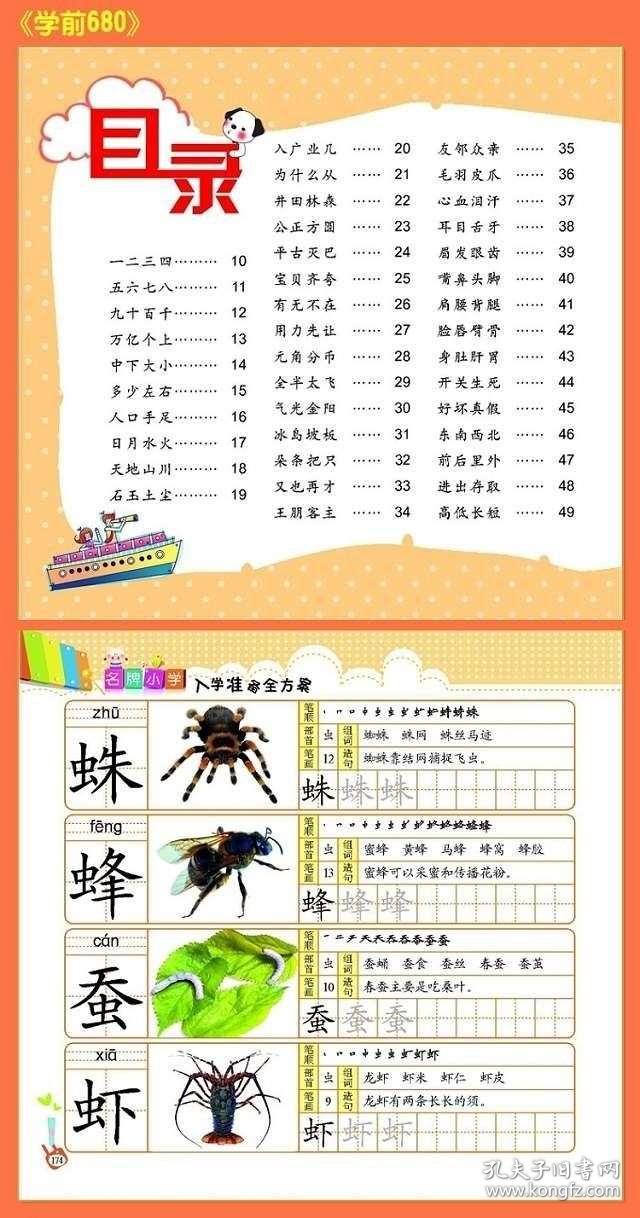 《学前680》
目录
一二三四……… 10
五六七八……… 11
九十百千……… 12
万亿个上……… 13
中下大小……… 14
多少左右……… 15
人口手足……… 16
日月水火……… 17
天地山川……… 18
石玉土尘……… 19
入广业几 …… 20
为什么从 …… 21
井田林森 …… 22
公正方圆 …… 23
平古灭巴 …… 24
宝贝齐夸 …… 25
有无不在 …… 26
用力先让 …… 27
元角分币 …… 28
全半太飞 …… 29
气光金阳 …… 30
冰岛坡板 …… 31
朵条把只 …… 32
又也再才 …… 33
王朋客主 …… 34
友邻众亲 …… 35
毛羽皮爪 …… 36
心血泪汗 …… 37
耳目舌牙 …… 38
眉发眼齿 …… 39
嘴鼻头脚 …… 40
肩腰背腿 …… 41
脸唇臂骨 …… 42
身肚肝胃 …… 43
开关生死 …… 44
好坏真假 …… 45
东南西北 …… 46
前后里外 …… 47
进出存取 …… 48
高低长短 …… 49
名牌小学 入学准备全方案
zhū
蛛
笔顺
部首 虫 组词 蜘蛛 蛛网 蛛丝马迹
笔画 12 造句 蜘蛛靠结网捕捉飞虫。
蛛 蛛 蛛
fēng
蜂
笔顺
部首 虫 组词 蜜蜂 黄蜂 马蜂 蜂窝 蜂胶
笔画 13 造句 蜜蜂可以采蜜和传播花粉。
蜂 蜂 蜂
cán
蚕
笔顺
部首 虫 组词 蚕蛹 蚕食 蚕丝 春蚕 蚕茧
笔画 10 造句 春蚕主要是吃桑叶。
蚕 蚕 蚕
xiā
虾
笔顺
部首 虫 组词 龙虾 虾米 虾仁 虾皮
笔画 9 造句 龙虾有两条长长的须。
虾 虾 虾
174
孔夫子旧书网
www.kongfz.com